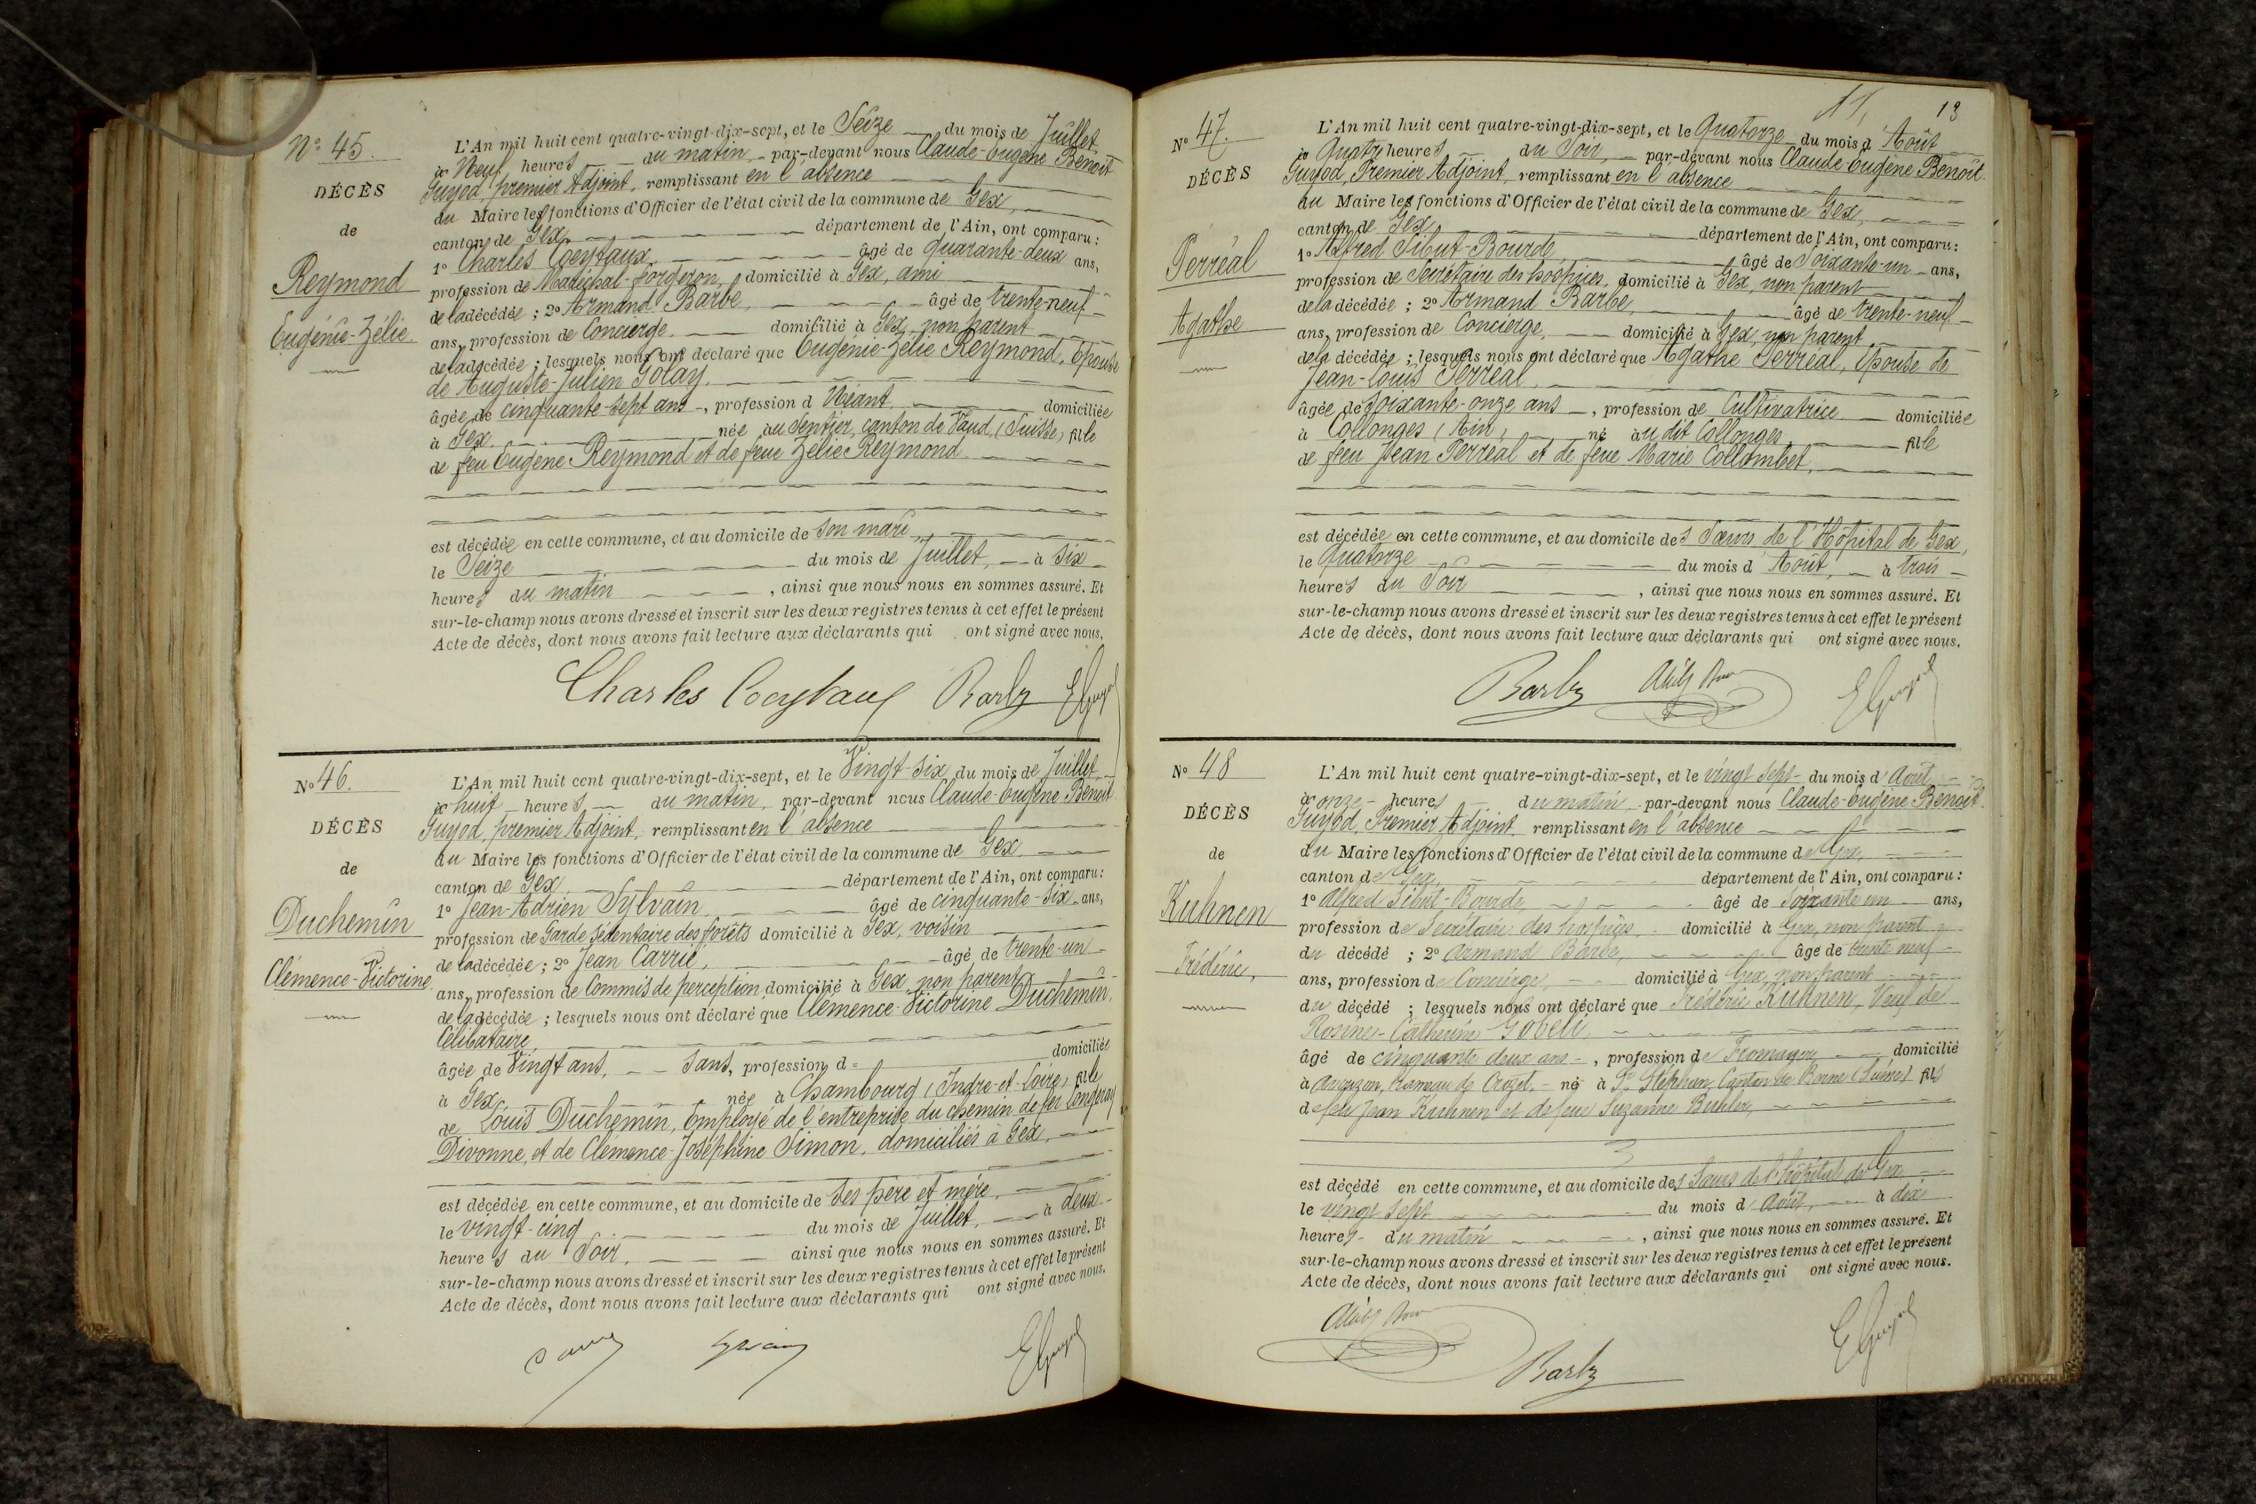 Nº 45.
DÉCÈS
de
Reymond
Eugénie-Zélie.
L'An mil huit cent quatre-vingt-dix-sept, et le Seize du mois de Juillet,
à Neuf heures du matin, par-devant nous Claude-Eugène Benoit
Guyod, premier Adjoint, remplissant en l'absence
du Maire les fonctions d'Officier de l'état civil de la commune de Gex,
canton de Gex, département de l'Ain, ont comparu :
1º Charles Coeytaux, âgé de quarante-deux ans,
profession de Maréchal-forgeron, domicilié à Gex, ami
de la décédée ; 2º Armand Barbe, âgé de trente-neuf
ans, profession de Concierge, domicilié à Gex, non parent
de la décédée ; lesquels nous ont déclaré que Eugénie-Zélie Reymond, Epouse
de Auguste-Julien Golay,
âgée de cinquante-sept ans, profession d Néant, domiciliée
à Gex, née au Sentier, canton de Vaud, (Suisse) fille
de feu Eugène Reymond et de feue Zélie Reymond
est décédée en cette commune, et au domicile de son mari,
le Seize du mois de Juillet, à six
heures du matin, ainsi que nous nous en sommes assuré. Et
sur-le-champ nous avons dressé et inscrit sur les deux registres tenus à cet effet le présent
Acte de décès, dont nous avons fait lecture aux déclarants qui ont signé avec nous.
Charles Coeytaux Barbe EGuyod
Nº 46.
DÉCÈS
de
Duchemin
Clémence-Victorine
L'An mil huit cent quatre-vingt-dix-sept, et le Vingt-six du mois de Juillet
à huit heures du matin, par-devant nous Claude-Eugène Benoit
Guyod, premier Adjoint, remplissant en l'absence
du Maire les fonctions d'Officier de l'état civil de la commune de Gex
canton de Gex, département de l'Ain, ont comparu :
1º Jean-Adrien Sylvain âgé de cinquante-six ans,
profession de Garde sédentaire des forêts domicilié à Gex, voisin
de la décédée ; 2º Jean Carrié, âgé de trente-un
ans, profession de Commis de perception, domicilié à Gex, non parent
de la décédée ; lesquels nous ont déclaré que Clémence-Victorine Duchemin,
Célibataire,
âgée de Vingt ans, sans, profession d= domiciliée
à Gex née à Chambourg (Indre-et-Loire) fille
de Louis Duchemin, Employé de l'entreprise du chemin de fer Longeray
Divonne, et de Clémence-Joséphine Simon, domiciliés à Gex,
est décédée en cette commune, et au domicile de ses père et mère,
le vingt-cinq du mois de Juillet, à deux
heures du Soir, ainsi que nous nous en sommes assuré. Et
sur-le-champ nous avons dressé et inscrit sur les deux registres tenus à cet effet le présent
Acte de décès, dont nous avons fait lecture aux déclarants qui ont signé avec nous.
EGuyod
17,
13
Nº 47.
DÉCÈS
Perréal
Agathe
L'An mil huit cent quatre-vingt-dix-sept, et le Quatorze du mois d'Août
à Quatre heures du Soir, par-devant nous Claude-Eugène Benoit
Guyod, Premier Adjoint, remplissant en l'absence
du Maire les fonctions d'Officier de l'état civil de la commune de Gex,
canton de Gex département de l'Ain, ont comparu :
1º Alfred Sibut-Bourde, âgé de Soixante-un ans,
profession de Secrétaire des hospices, domicilié à Gex, non parent
de la décédée ; 2º Armand Barbe, âgé de trente-neuf
ans, profession de Concierge, domicilié à Gex, non parent
de la décédée ; lesquels nous ont déclaré que Agathe Perréal, Epouse de
Jean-Louis Perréal,
âgée de soixante-onze ans, profession de Cultivatrice domiciliée
à Collonges (Ain), né au dit Collonges, fille
de feu Jean Perréal et de feue Marie Collombet,
est décédée en cette commune, et au domicile des Sœurs de l'Hôpital de Gex,
le Quatorze du mois d'Août, à trois
heures du Soir, ainsi que nous nous en sommes assuré. Et
sur-le-champ nous avons dressé et inscrit sur les deux registres tenus à cet effet le présent
Acte de décès, dont nous avons fait lecture aux déclarants qui ont signé avec nous.
Barbe EGuyod
Nº 48
DÉCÈS
de
Kuhnen
Frédéric,
L'An mil huit cent quatre-vingt-dix-sept, et le vingt sept du mois d'Août
à onze heures du matin par-devant nous Claude-Eugène Benoit
Guyod, Premier Adjoint, remplissant en l'absence
du Maire les fonctions d'Officier de l'état civil de la commune de Gex,
canton de Gex, département de l'Ain, ont comparu :
1º Alfred Sibut-Bourde, âgé de Soixante un ans,
profession de Secrétaire des hospices, domicilié à Gex, non parent
du décédé ; 2º Armand Barbe, âgé de trente neuf
ans, profession de Concierge, domicilié à Gex, non parent
du décédé ; lesquels nous ont déclaré que Frédéric Kuhnen, Veuf de
Catherine Gobeli,
âgé de cinquante deux ans, profession de Fromager domicilié
à Avouzon, hameau de Crozet, né à St Stephan, Canton de Berne (Suisse) fils
de feu Jean Kuhnen et de feue Suzanne Buhler,
est décédé en cette commune, et au domicile des Sœurs de l'hôpital de Gex
le vingt sept du mois d'Août, à dix
heures du matin, ainsi que nous nous en sommes assuré. Et
sur-le-champ nous avons dressé et inscrit sur les deux registres tenus à cet effet le présent
Acte de décès, dont nous avons fait lecture aux déclarants qui ont signé avec nous.
Barbe EGuyod